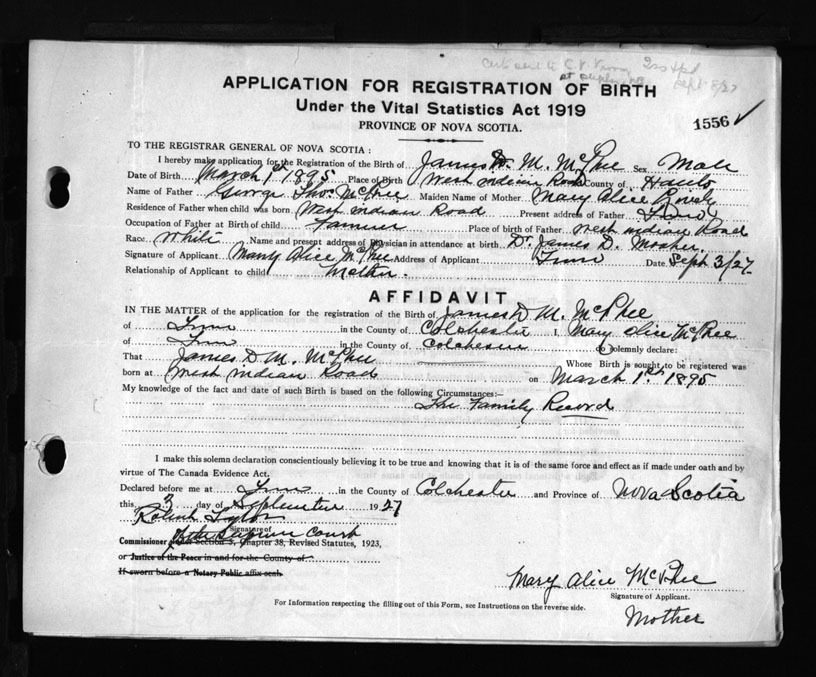 Sept 8/27
APPLICATION FOR REGISTRATION OF BIRTH
Under the Vital Statistics Act 1919
PROVINCE OF NOVA SCOTIA.
1556
TO THE REGISTRAR GENERAL OF NOVA SCOTIA :
I hereby make application for the Registration of the Birth of James D. M. McPhee Sex Male
Date of Birth March 1st 1895 Place of Birth West Indian Road County of Hants
Name of Father George Thos. McPhee Maiden Name of Mother Mary Alice
Residence of Father when child was born West Indian Road Present address of Father Truro
Occupation of Father at Birth of child Farmer Place of birth of Father West Indian Road
Race White Name and present address of Physician in attendance at birth Dr. James D. Mosher
Signature of Applicant Mary Alice McPhee Address of Applicant Truro Date Sept 3/27
Relationship of Applicant to child Mother.
AFFIDAVIT
IN THE MATTER of the application for the registration of the Birth of James D M. McPhee
of Truro in the County of Colchester I, Mary Alice McPhee
of Truro in the County of Colchester Do solemnly declare:
That James D M. McPhee Whose Birth is sought to be registered was
born at West Indian Road on March 1st 1895
My knowledge of the fact and date of such Birth is based on the following Circumstances:—
The Family Record
I make this solemn declaration conscientiously believing it to be true and knowing that it is of the same force and effect as if made under oath and by
virtue of The Canada Evidence Act.
Declared before me at Truro in the County of Colchester and Province of Nova Scotia
this 3 day of September 1927
Signature of
Commissioner under Section 3, Chapter 38, Revised Statutes, 1923, Supreme Court
or Justice of the Peace in and for the County of
If sworn before a Notary Public affix seal.
Mary Alice McPhee
Signature of Applicant.
For Information respecting the filling out of this Form, see Instructions on the reverse side.
Mother